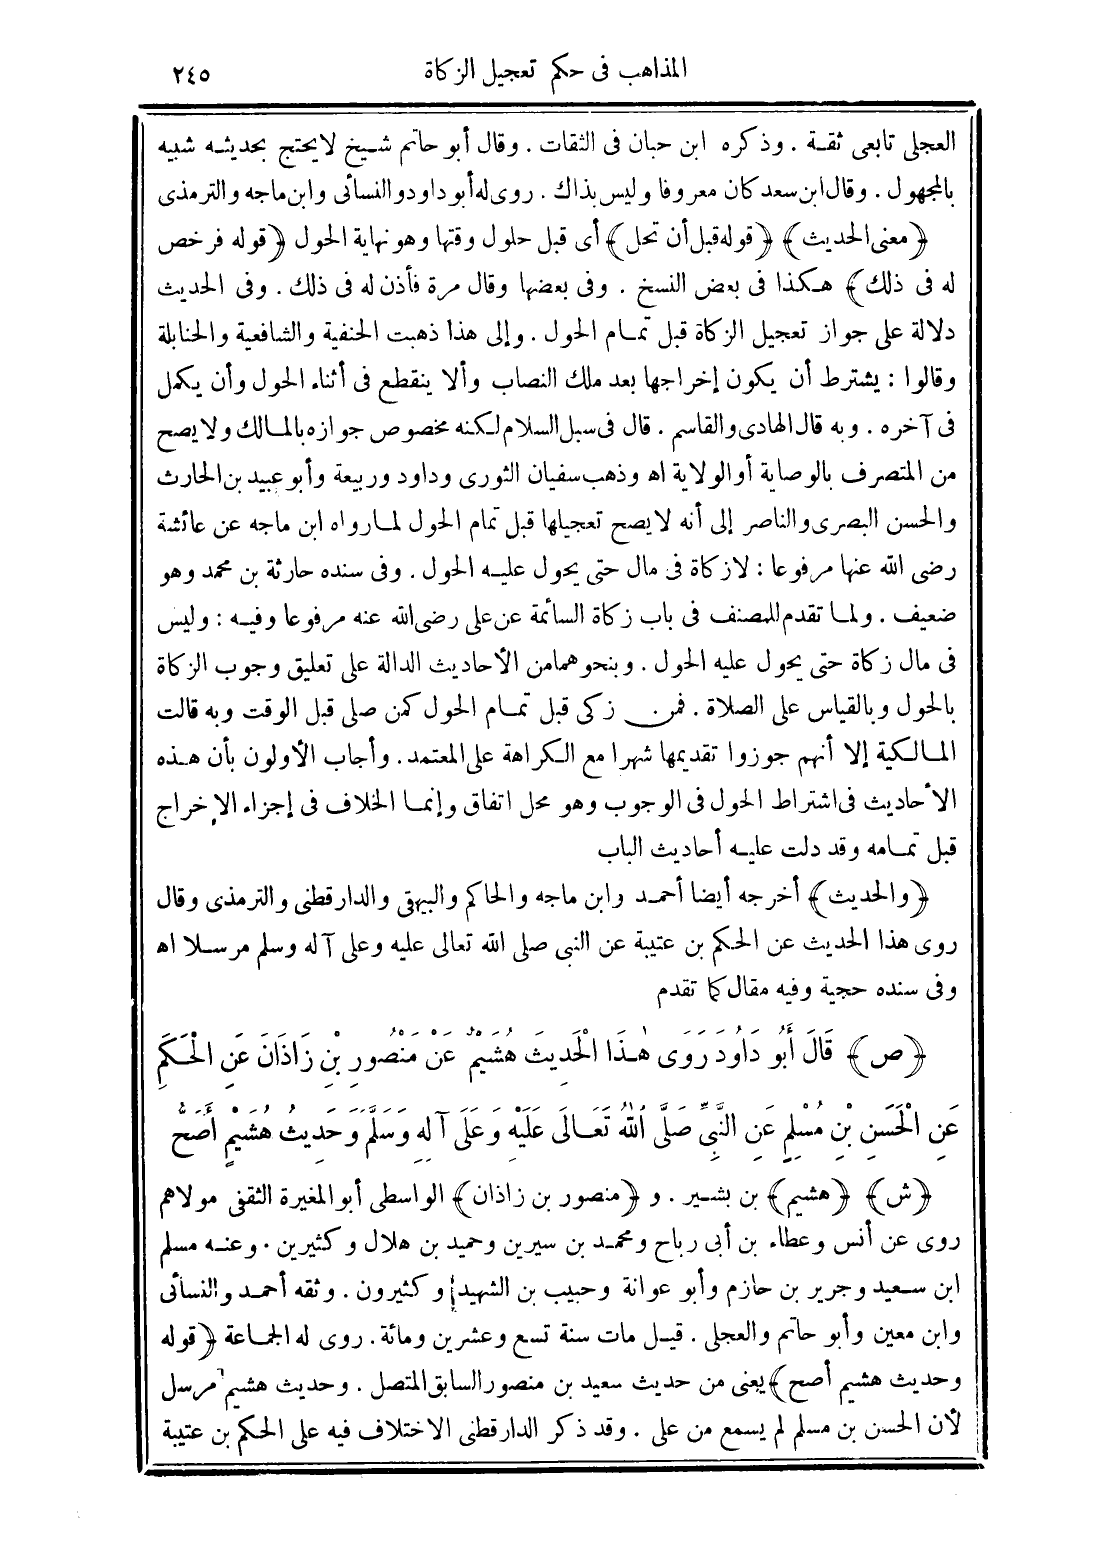 المذاهب فى حكم تعجيل الزكاة ٢٤٥
العجلى تابعى ثقة . وذكره ابن حبان فى الثقات . وقال أبو حاتم شيخ لايحتج بحديثه شبيه
بالمجهول . وقال ابن سعد كان معروفا وليس بذاك . روى له أبو داود والنسائى وابن ماجه والترمذى
﴿معنى الحديث﴾ ﴿قوله قبل أن تحل﴾ أى قبل حلول وقتها وهو نهاية الحول ﴿قوله فرخص
له فى ذلك﴾ هكذا فى بعض النسخ . وفى بعضها وقال مرة فأذن له فى ذلك . وفى الحديث
دلالة على جواز تعجيل الزكاة قبل تمام الحول . وإلى هذا ذهبت الحنفية والشافعية والحنابلة
وقالوا : يشترط أن يكون إخراجها بعد ملك النصاب وألا ينقطع فى أثناء الحول وأن يكمل
فى آخره . وبه قال الهادى والقاسم . قال فى سبل السلام لكنه مخصوص جوازه بالمالك ولا يصح
من المتصرف بالوصاية أو الولاية اه وذهب سفيان الثورى وداود وربيعة وأبو عبيد بن الحارث
والحسن البصرى والناصر إلى أنه لايصح تعجيلها قبل تمام الحول لمارواه ابن ماجه عن عائشة
رضى الله عنها مرفوعا : لازكاة فى مال حتى يحول عليه الحول . وفى سنده حارثة بن محمد وهو
ضعيف . ولما تقدم للمصنف فى باب زكاة السائمة عن على رضى الله عنه مرفوعا وفيه : وليس
فى مال زكاة حتى يحول عليه الحول . وبنحوهما من الأحاديث الدالة على تعليق وجوب الزكاة
بالحول وبالقياس على الصلاة . فمن زكى قبل تمام الحول كمن صلى قبل الوقت وبه قالت
المالكية إلا أنهم جوزوا تقديمها شهرا مع الكراهة على المعتمد. وأجاب الأولون بأن هذه
الأحاديث فى اشتراط الحول فى الوجوب وهو محل اتفاق وإنما الخلاف فى إجزاء الإخراج
قبل تمامه وقد دلت عليه أحاديث الباب
﴿والحديث﴾ أخرجه أيضا أحمد وابن ماجه والحاكم والبيهقى والدارقطنى والترمذى وقال
روى هذا الحديث عن الحكم بن عتيبة عن النبى صلى الله تعالى عليه وعلى آله وسلم مرسلا اه
وفى سنده حجية وفيه مقال كما تقدم
﴿ص﴾ قَالَ أَبُو دَاوُدَ رَوَى هٰذَا الْحَدِيثَ هُشَيْمٌ عَنْ مَنْصُورِ بْنِ زَاذَانَ عَنِ الْحَكَمِ
عَنِ الْحَسَنِ بْنِ مُسْلِمٍ عَنِ النَّبِىِّ صَلَّى اللهُ تَعَالَى عَلَيْهِ وَعَلَى آلِهِ وَسَلَّمَ وَحَدِيثُ هُشَيْمٍ أَصَحُّ
﴿ش﴾ ﴿هشيم﴾ بن بشير . و ﴿منصور بن زاذان﴾ الواسطى أبو المغيرة الثقفى مولاهم
روى عن أنس وعطاء بن أبى رباح ومحمد بن سيرين وحميد بن هلال وكثيرين . وعنه مسلم
ابن سعيد وجرير بن حازم وأبو عوانة وحبيب بن الشهيد وكثيرون . وثقه أحمد والنسائى
وابن معين وأبو حاتم والعجلى . قيل مات سنة تسع وعشرين ومائة. روى له الجماعة ﴿قوله
وحديث هشيم أصح﴾ يعنى من حديث سعيد بن منصور السابق المتصل . وحديث هشيم مرسل
لأن الحسن بن مسلم لم يسمع من على . وقد ذكر الدارقطنى الاختلاف فيه على الحكم بن عتيبة